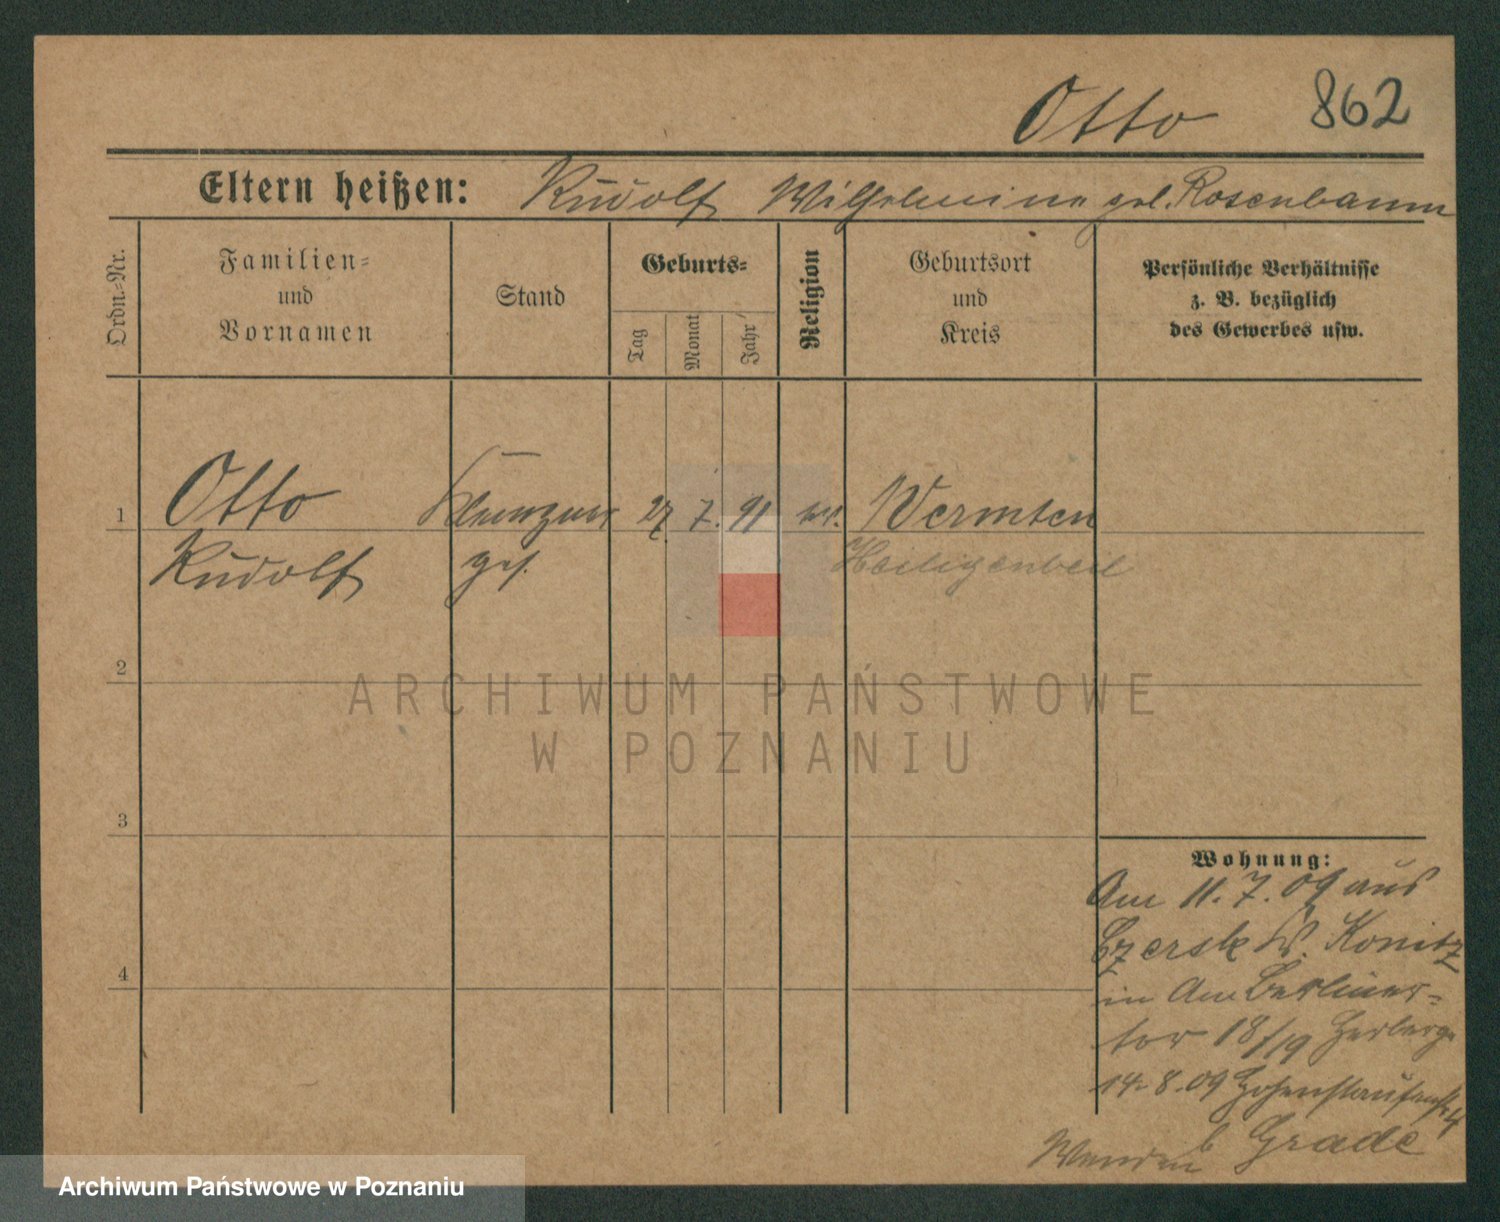 Otto 862
Eltern heißen: Rudolf Wilhelmine geb. Rosenbaum
Ordn.-Nr.
Familien-
und
Vornamen
Stand
Geburts-
Tag
Monat
Jahr
Religion
Geburtsort
und
Kreis
Persönliche Verhältnisse
z. B. bezüglich
des Gewerbes usw.
1 Otto 27. 7. 91 ev. Wermten
Rudolf Heiligenbeil
2
ARCHIWUM PAŃSTWOWE
W POZNANIU
3
4
Wohnung:
Am 11. 7. 09 aus
Czersk Konitz
in Am Berliner-
tor 18/19 Herberge
14. 8. 09 Hohenstaufenstr. 4
b Grade
Archiwum Państwowe w Poznaniu